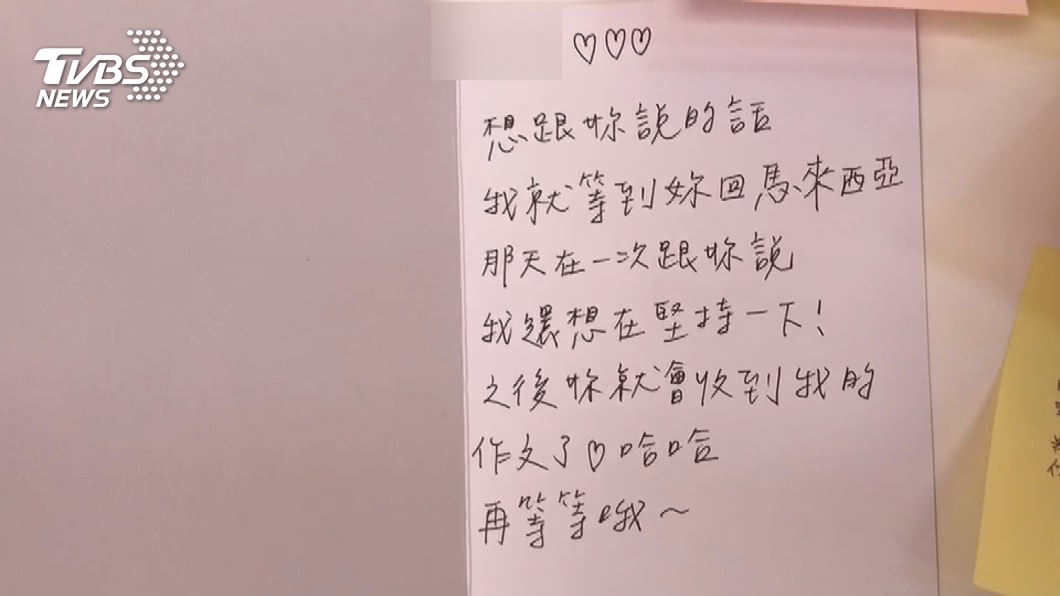 TVBS
NEWS
♡♡♡
想跟妳說的話
我就等到妳回馬來西亞
那天在一次跟妳說
我還想在堅持一下!
之後妳就會收到我的
作文了♡哈哈
再等等哦~